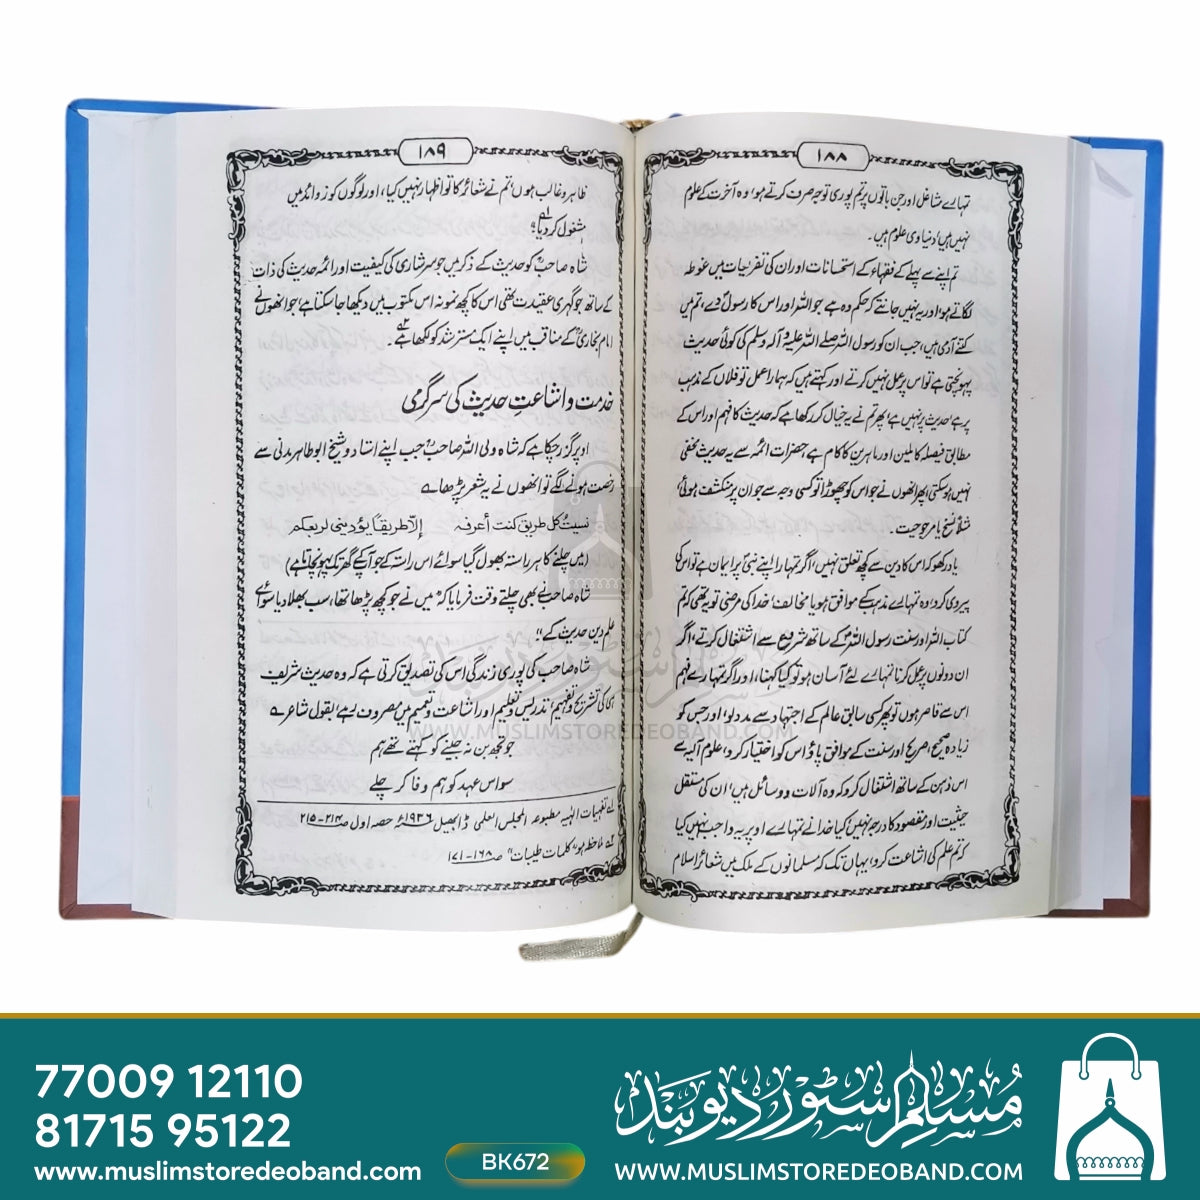 ۱۸۸
تمہارے مشاغل اور جن باتوں پر تم پوری توجہ صرف کرتے ہو، وہ آخرت کے علوم
نہیں ہیں، دنیاوی علوم ہیں۔
تم اپنے سے پہلے کے فقہاء کے استحسانات اور ان کی تفریعات میں غوطہ
لگاتے ہو، اور یہ نہیں جانتے کہ حکم وہ ہے جو اللہ اور اس کا رسولؐ دے، تم میں
کتنے آدمی ہیں، جب ان کو رسول اللہ صلے اللہ علیہ و آلہ وسلم کی کوئی حدیث
پہونچتی ہے تو اس پر عمل نہیں کرتے اور کہتے ہیں کہ ہمارا عمل تو فلاں کے مذہب
پر ہے حدیث پر نہیں ہے، پھر تم نے یہ خیال کر رکھا ہے کہ حدیث کا فہم اور اس کے
مطابق فیصلہ کاملین اور ماہرین کا کام ہے، حضرات ائمہ سے یہ حدیث مخفی
نہیں ہوسکتی، پھر انھوں نے جو اس کو چھوڑا تو کسی وجہ سے جو ان پر منکشف ہوئی،
مثلاً نسخ یا مرجوحیت۔
یاد رکھو کہ اس کا دین سے کچھ تعلق نہیں، اگر تمہارا اپنے نبیؐ پر ایمان ہے تو اس کی
پیروی کرو، وہ تمہارے مذہب کے موافق ہو یا مخالف، خدا کی مرضی تو یہ تھی کہ تم
کتاب اللہ اور سنت رسول اللہؐ کے ساتھ شروع سے اشتغال کرتے، اگر
ان دونوں پر عمل کرنا تمہارے لئے آسان ہو تو کیا کہنا، اور اگر تمہارے فہم
اس سے قاصر ہوں تو پھر کسی سابق عالم کے اجتہاد سے مدد لو، اور جس کو
زیادہ صحیح، صریح اور سنت کے موافق پاؤ اس کو اختیار کرو، علوم آلیہ سے
اس ذہن کے ساتھ اشتغال کرو کہ وہ آلات و وسائل ہیں، ان کی مستقل
حیثیت اور مقصود کا درجہ نہیں کیا خدا نے تمہارے اوپر یہ واجب نہیں کیا
کہ تم علم کی اشاعت کرو، یہاں تک کہ مسلمانوں کے ملک میں شعائر اسلام
۱۸۹
ظاہر و غالب ہوں، تم نے شعائر کا تو اظہار نہیں کیا، اور لوگوں کو زوائد میں
مشغول کر دیا؛
شاہ صاحبؒ کو حدیث کے ذکر میں جو سرشاری کی کیفیت اور ائمہ حدیث کی ذات
کے ساتھ جو گہری عقیدت تھی اس کا کچھ نمونہ اس مکتوب میں دیکھا جاسکتا ہے، جو انھوں نے
امام بخاریؒ کے مناقب میں اپنے ایک مسترشد کو لکھا ہے۔
خدمت و اشاعتِ حدیث کی سرگرمی
اوپر گزر چکا ہے کہ شاہ ولی اللہ صاحبؒ جب اپنے استاد و شیخ ابو طاہر مدنی سے
رخصت ہونے لگے تو انھوں نے یہ شعر پڑھا ؎
نسيتُ كل طريق كنت أعرفه إلا طريقًا يؤديني لربعكم
(میں چلنے کا ہر راستہ بھول گیا سوائے اس راستہ کے جو آپ کے گھر تک پہونچاتا ہے)
شاہ صاحبؒ نے بھی چلتے وقت فرمایا کہ "میں نے جو کچھ پڑھا تھا، سب بھلا دیا سوائے
علم دین حدیث کے"؛
شاہ صاحب کی پوری زندگی اس کی تصدیق کرتی ہے کہ وہ حدیث شریف
ہی کی تشریح و تفہیم، تدریس و تعلیم اور اشاعت و تعمیم میں مصروف رہے، بقول شاعر ؎
جو تجھ بن نہ جینے کو کہتے تھے ہم
سو اس عہد کو ہم وفا کر چلے
لہ تفہیمات الٰہیہ مطبوعہ المجلس العلمی ڈابھیل ۱۹۳۶ء حصہ اول ص ۲۱۴-۲۱۵
لہ ملاحظہ ہو "کلمات طیبات" ص ۱۶۸-۱۷۱
مسلم سٹور دیوبند
WWW.MUSLIMSTOREDEOBAND.COM
77009 12110
81715 95122
www.muslimstoredeoband.com
BK672
مسلم سٹور دیوبند
WWW.MUSLIMSTOREDEOBAND.COM